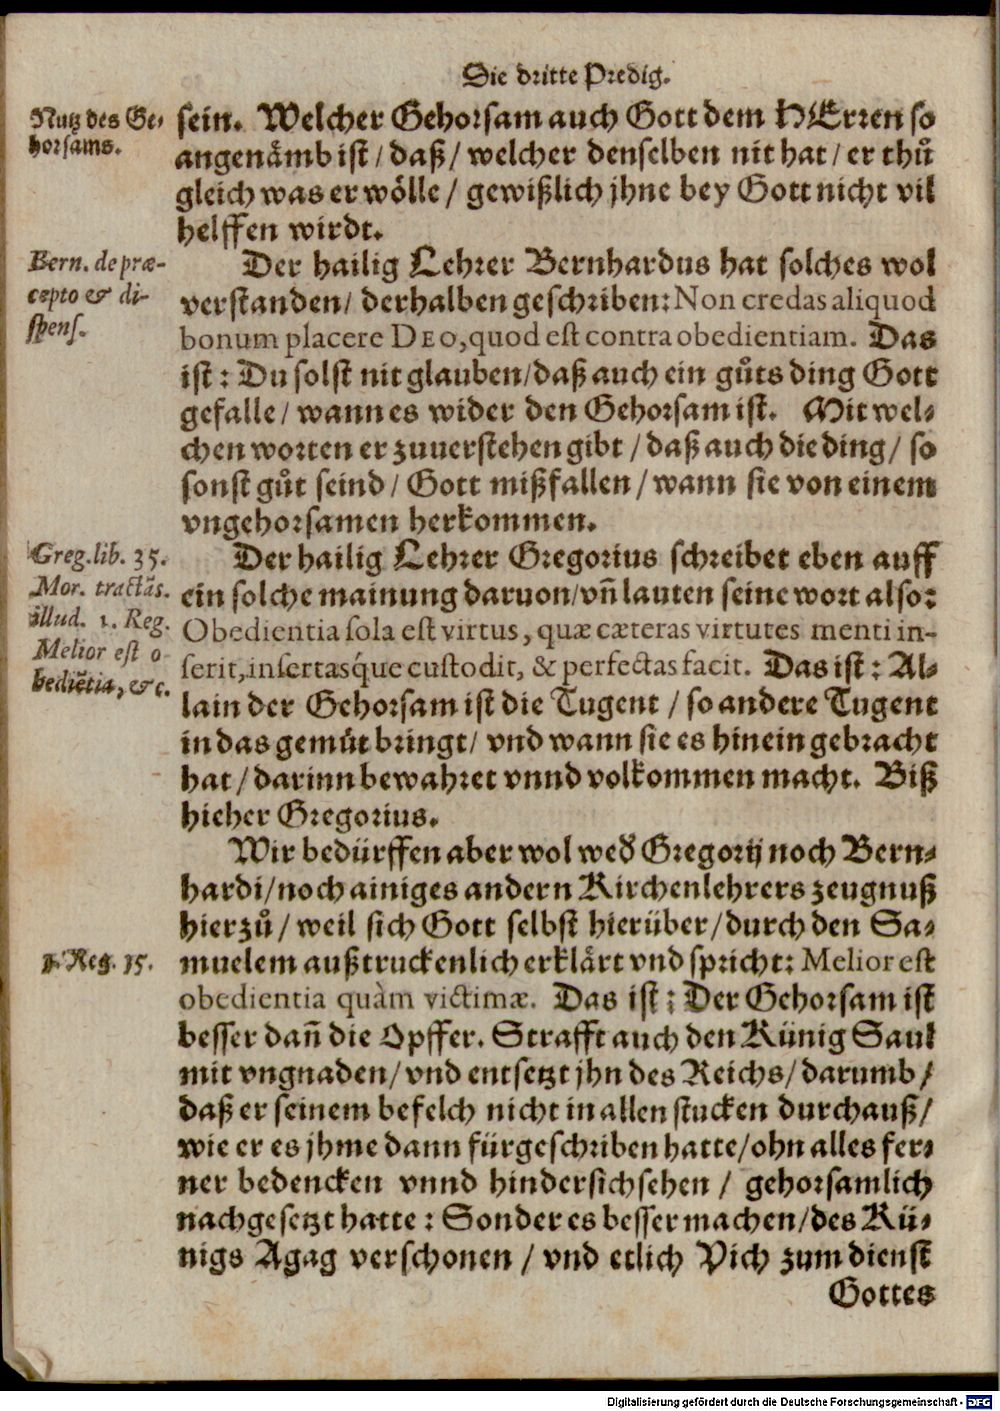 Die dritte Predig.
Nutz des Ge-
horsams.
sein. Welcher Gehorsam auch Gott dem HErren so
angenämb ist / daß / welcher denselben nit hat / er thů
gleich was er wölle / gewißlich jhne bey Gott nicht vil
helffen wirdt.
Bern. de præ-
cepto & di-
spens.
Der hailig Lehrer Bernhardus hat solches wol
verstanden / derhalben geschriben: Non credas aliquod
bonum placere DEO, quod est contra obedientiam. Das
ist: Du solst nit glauben / daß auch ein gůts ding Gott
gefalle / wann es wider den Gehorsam ist. Mit wel-
chen worten er zuuerstehen gibt / daß auch die ding / so
sonst gůt seind / Gott mißfallen / wann sie von einem
vngehorsamen herkommen.
Greg. lib. 35.
Mor. tractãs.
illud. 1. Reg.
Melior est o-
bediẽtia, &c.
Der hailig Lehrer Gregorius schreibet eben auff
ein solche mainung daruon / vñ lauten seine wort also:
Obedientia sola est virtus, quæ cæteras virtutes menti in-
serit, insertasq́ue custodit, & perfectas facit. Das ist: Al-
lain der Gehorsam ist die Tugent / so andere Tugent
in das gemůt bringt / vnd wann sie es hinein gebracht
hat / darinn bewahret vnnd volkommen macht. Biß
hieher Gregorius.
Wir bedürffen aber wol wed̃ Gregorij noch Bern-
hardi / noch ainiges andern Kirchenlehrers zeugnuß
hierzů / weil sich Gott selbst hierüber / durch den Sa-
1. Reg. 15.
muelem außtruckenlich erklärt vnd spricht: Melior est
obedientia quàm victimæ. Das ist: Der Gehorsam ist
besser dañ die Opffer. Strafft auch den Künig Saul
mit vngnaden / vnd entsetzt jhn des Reichs / darumb /
daß er seinem befelch nicht in allen stucken durchauß /
wie er es jhme dann fürgeschriben hatte / ohn alles fer-
ner bedencken vnnd hindersichsehen / gehorsamlich
nachgesetzt hatte: Sonder es besser machen / des Kü-
nigs Agag verschonen / vnd etlich Vich zum dienst
Gottes
Digitalisierung gefördert durch die Deutsche Forschungsgemeinschaft - DFG